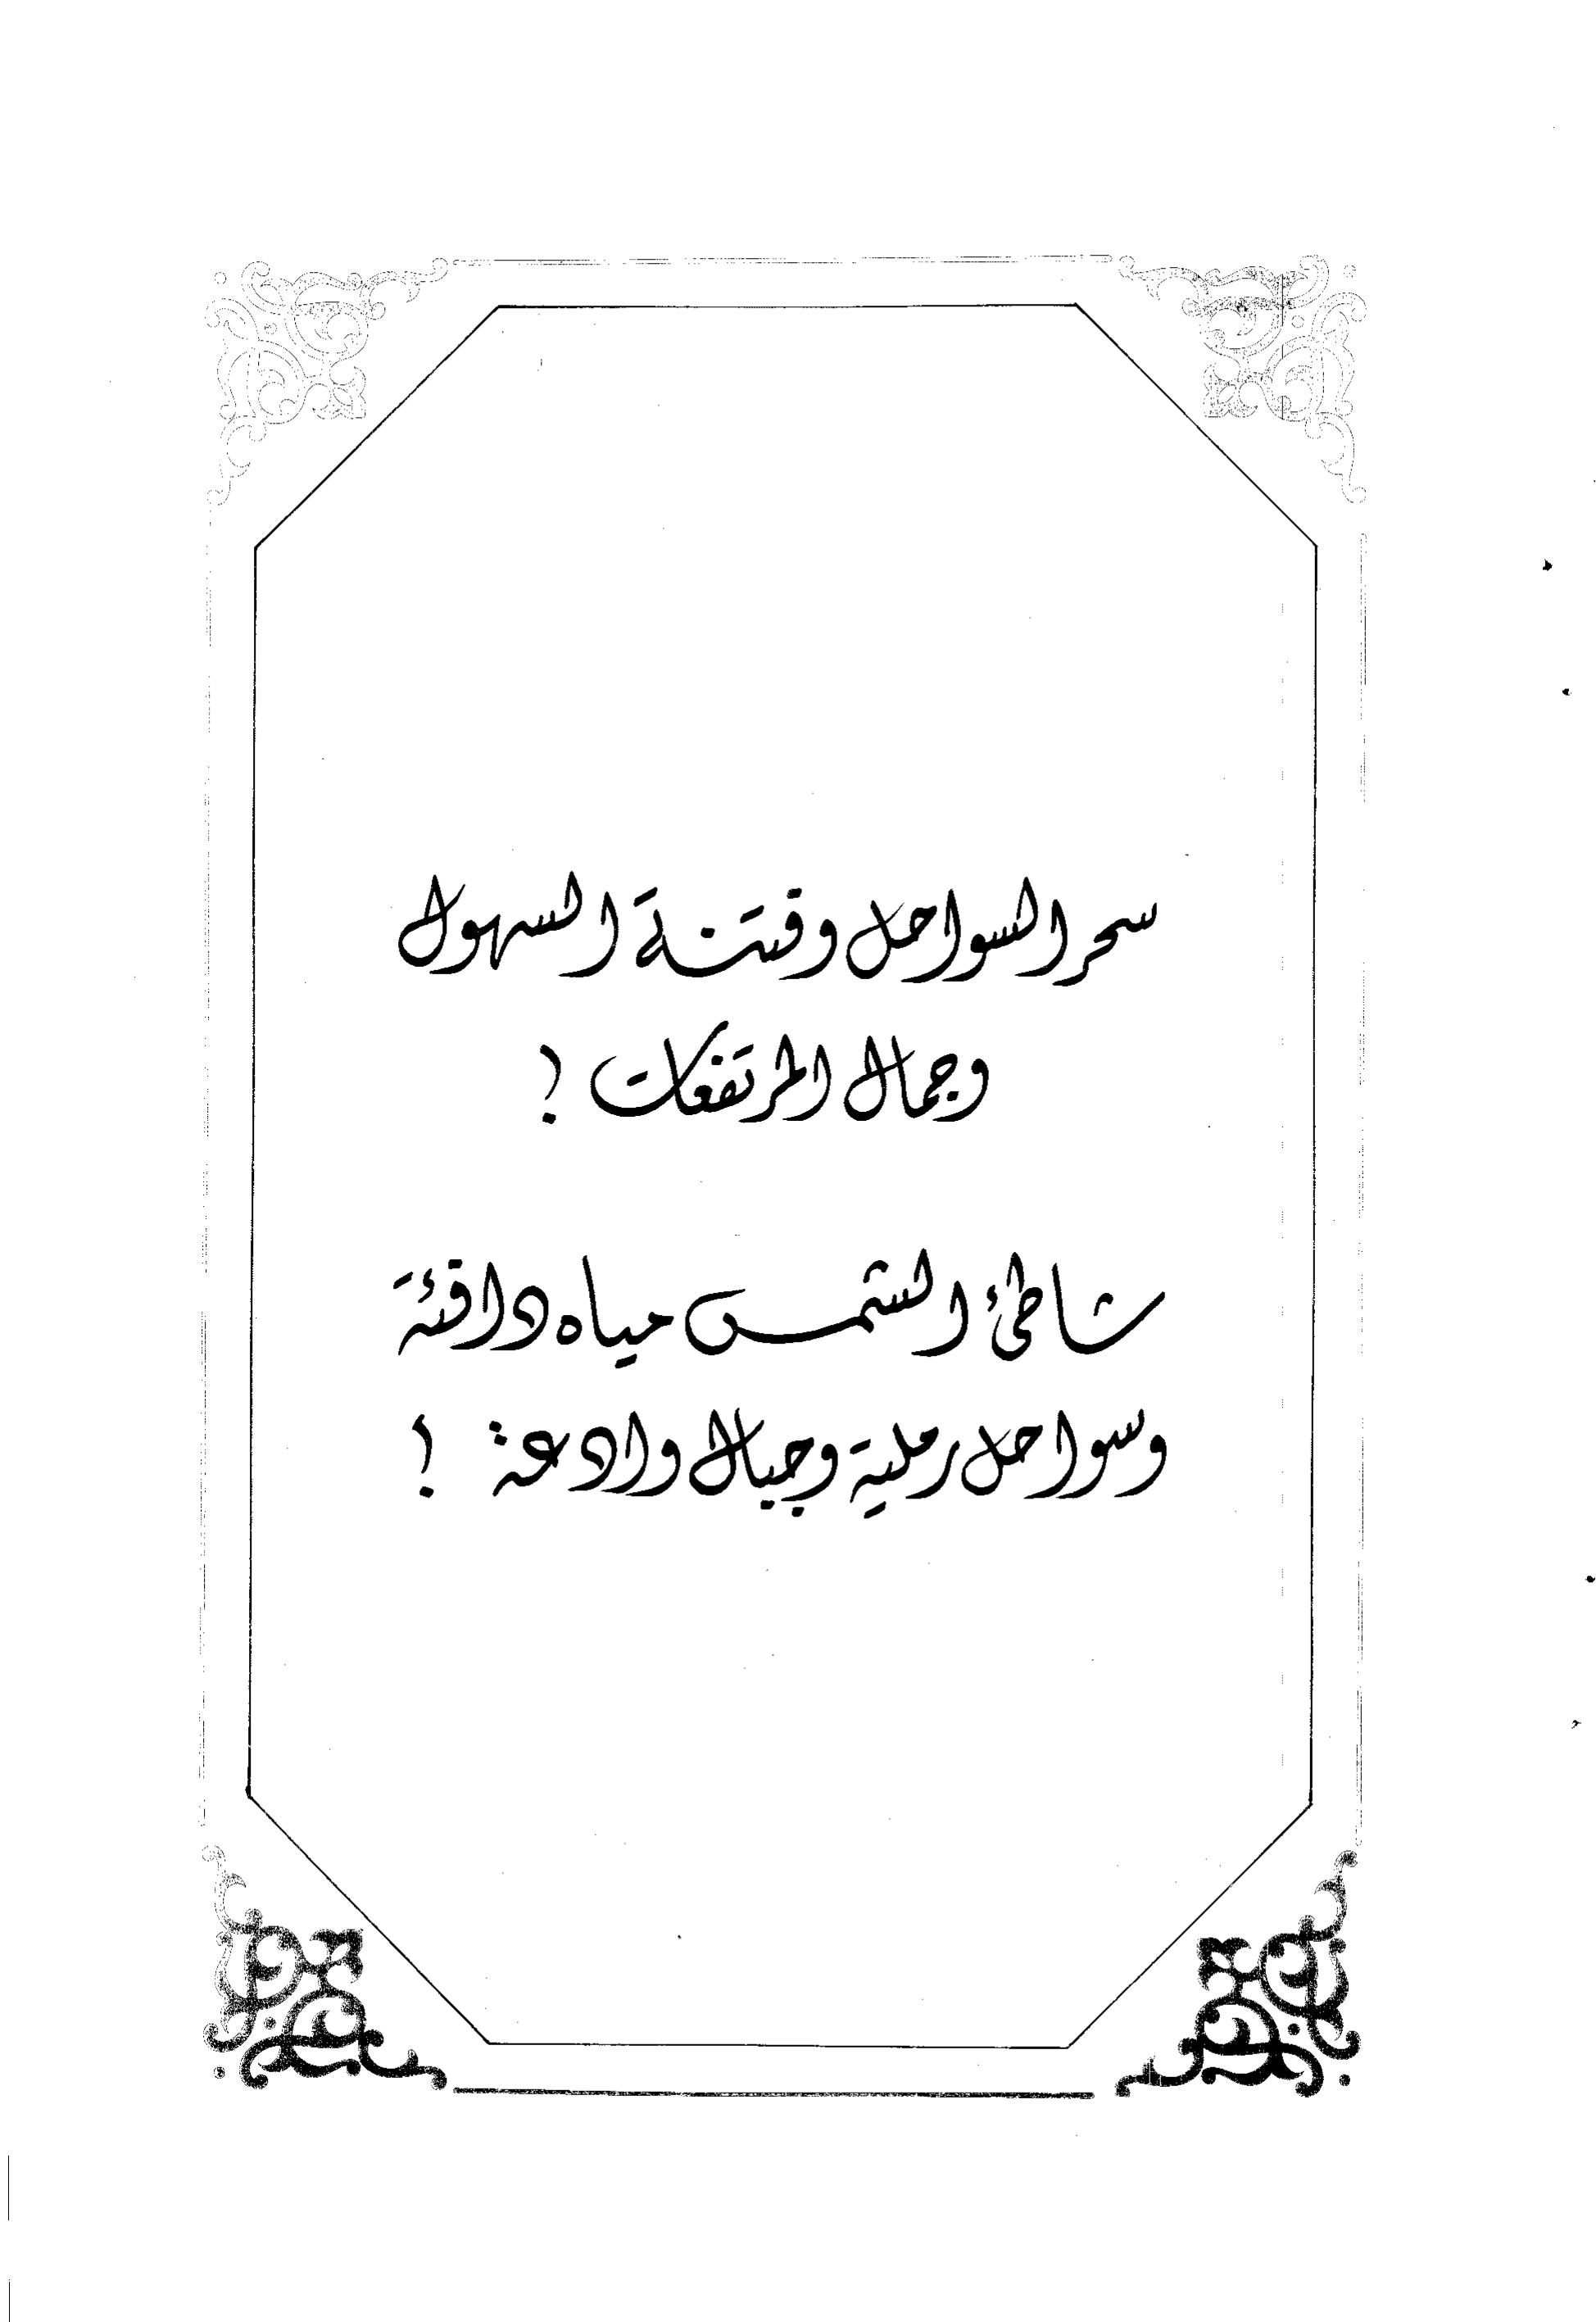 سحر السواحل وفتنة السهول
وجمال المرتفعات !
شاطئ الشمس مياه دافئة
وسواحل رملية وجبال وادعة !